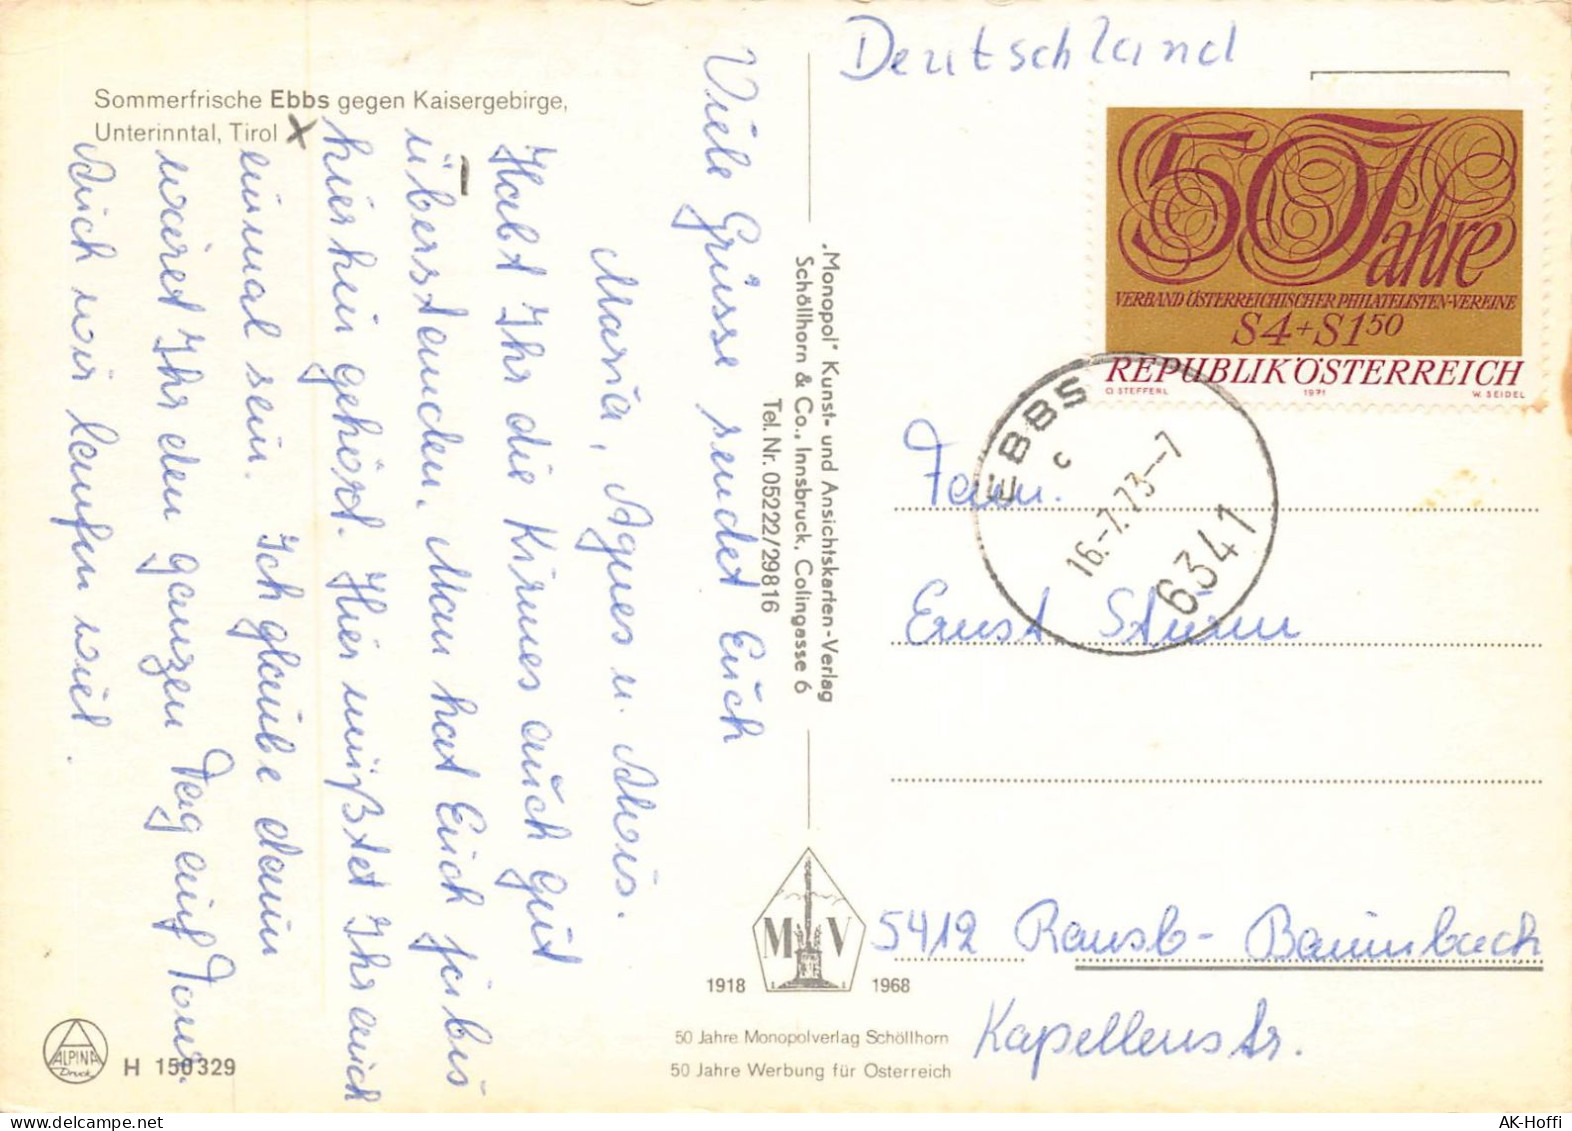 Sommerfrische Ebbs gegen Kaisergebirge,
Unterinntal, Tirol x
Viele Grüsse sendet Euch
Maria, Agnes u. Alois.
Habt Ihr die Kirmes auch gut
überstanden. Man hat Euch ja bis
hierhin gehört. Hier müßtet Ihr auch
einmal sein. Ich glaube dann
wäret Ihr den ganzen Tag auf Tour.
Auch wir laufen viel.
"Monopol" Kunst- und Ansichtskarten-Verlag
Schöllhorn & Co., Innsbruck, Colingasse 6
Tel. Nr. 05222/29816
M V
1918 1968
50 Jahre Monopolverlag Schöllhorn
50 Jahre Werbung für Österreich
ALPINA
Druck
H 150329
Deutschland
50 Jahre
VERBAND ÖSTERREICHISCHER PHILATELISTEN-VEREINE
S4+S1 50
REPUBLIK ÖSTERREICH
O. STEFFERL 1971 W. SEIDEL
EBBS
c
16.-7.73--7
6341
Fam.
Ernst Sturm
5412 Ransb- Baumbach
Kapellenstr.
AK-Hoffi